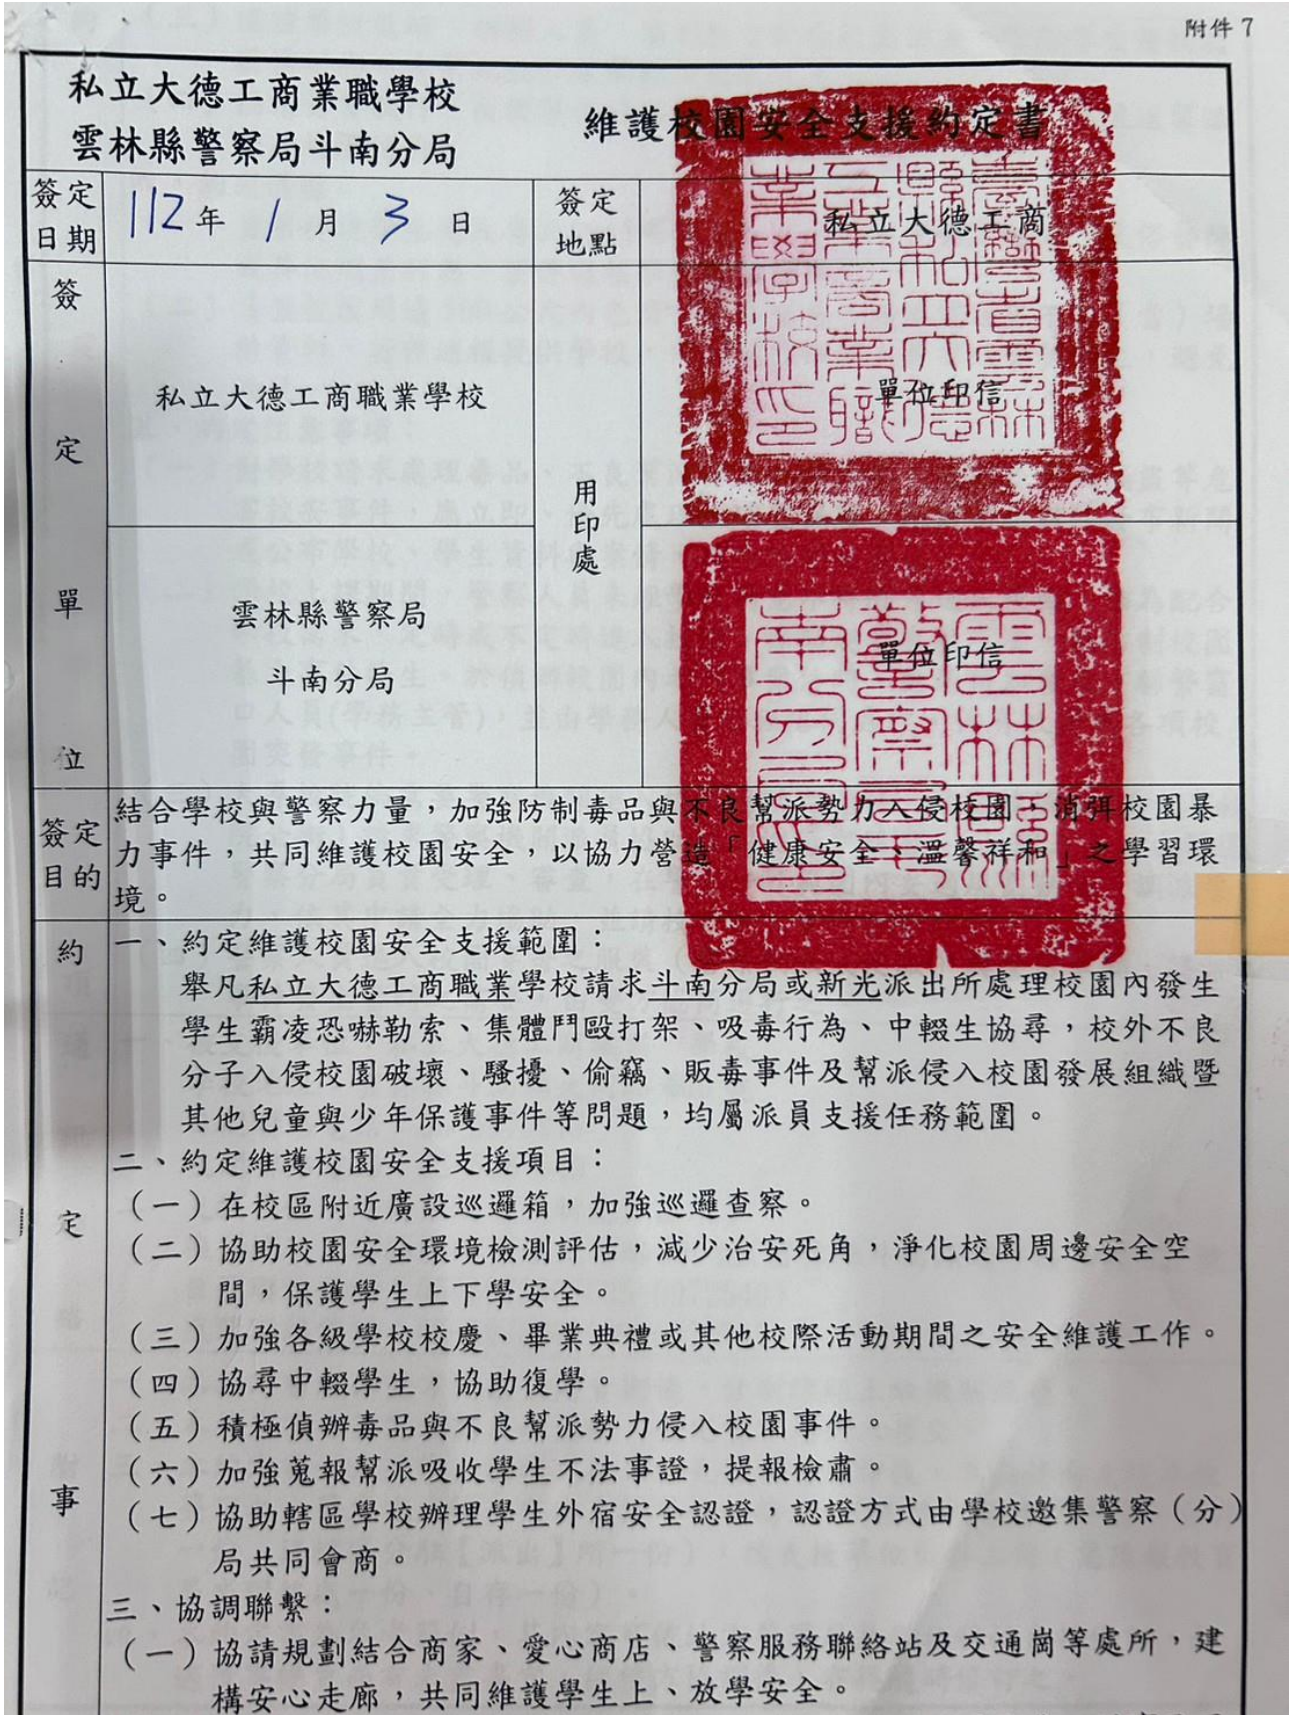 附件 7
私立大德工商業職學校
雲林縣警察局斗南分局
維護校園安全支援約定書
簽定日期
112年 1 月 3 日
簽定地點
私立大德工商
簽定單位
私立大德工商職業學校
用印處
單位印信
臺灣省雲林縣私立大德工業商業職業學校印
雲林縣警察局
斗南分局
單位印信
雲林縣警察局斗南分局印
簽定目的
結合學校與警察力量，加強防制毒品與不良幫派勢力入侵校園，消弭校園暴
力事件，共同維護校園安全，以協力營造「健康安全、溫馨祥和」之學習環
境。
約定事
一、約定維護校園安全支援範圍：
舉凡私立大德工商職業學校請求斗南分局或新光派出所處理校園內發生
學生霸凌恐嚇勒索、集體鬥毆打架、吸毒行為、中輟生協尋，校外不良
分子入侵校園破壞、騷擾、偷竊、販毒事件及幫派侵入校園發展組織暨
其他兒童與少年保護事件等問題，均屬派員支援任務範圍。
二、約定維護校園安全支援項目：
（一）在校區附近廣設巡邏箱，加強巡邏查察。
（二）協助校園安全環境檢測評估，減少治安死角，淨化校園周邊安全空
間，保護學生上下學安全。
（三）加強各級學校校慶、畢業典禮或其他校際活動期間之安全維護工作。
（四）協尋中輟學生，協助復學。
（五）積極偵辦毒品與不良幫派勢力侵入校園事件。
（六）加強蒐報幫派吸收學生不法事證，提報檢肅。
（七）協助轄區學校辦理學生外宿安全認證，認證方式由學校邀集警察（分）
局共同會商。
三、協調聯繫：
（一）協請規劃結合商家、愛心商店、警察服務聯絡站及交通崗等處所，建
構安心走廊，共同維護學生上、放學安全。